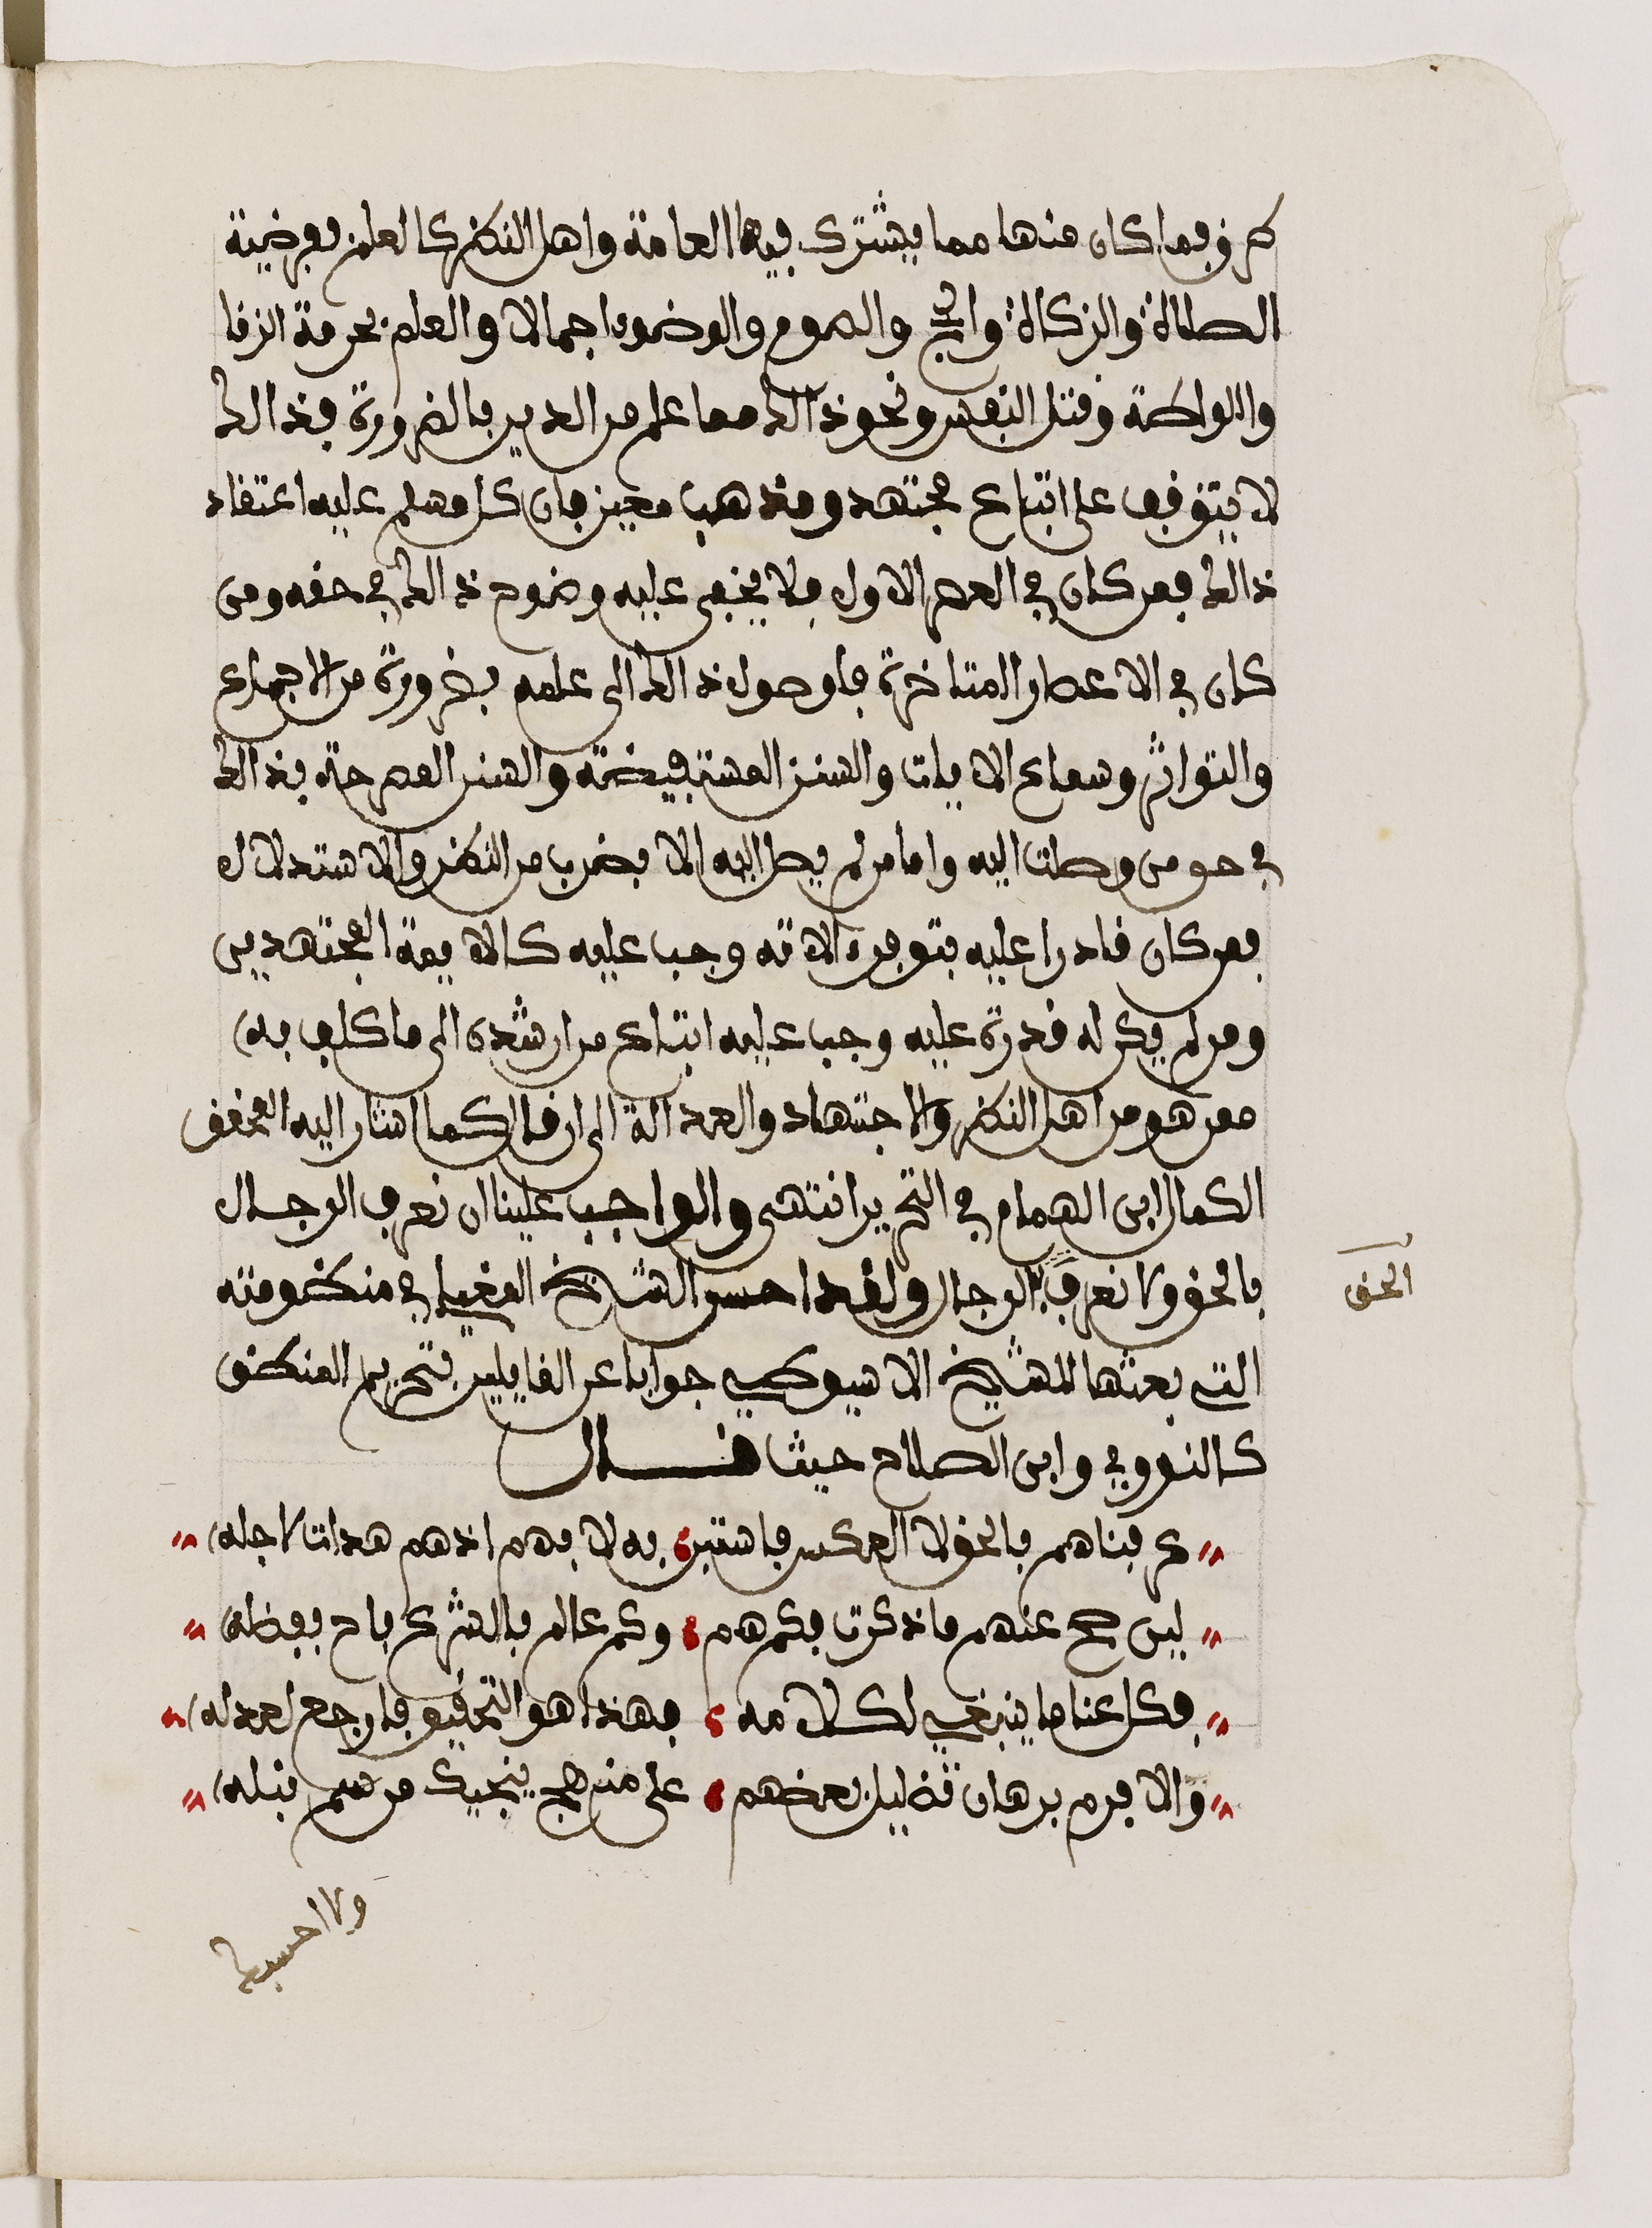 طرق فما كان منها مما يشترك فيها العامة واهل النظر كالعلم بفرضية
الصلاة والزكاة والحج والصوم والوضوء اجمالا والعلم بحرمة الزنا
واللواطة وقتل النفس ونحو ذالك مما علم من الدين بالضرورة فذالك
لا يتوقف على اتباع مجتهد ومذهب معين فان كل مسلم عليه اعتقاد
ذالك فمن كان في العصر الاول فلا يخفى عليه وضوح ذالك في حقه ومن
كان في الاعصار المتاخرة فلوصول ذالك الى علمه بضرورة من الاجماع
والتواتر وسماع الايات والسنن المستفيضة والسنن المصرحة بذالك
في حق من وصلت اليه واما من لم يصل اليه الا بضرب من النظر والاستدلال
فمن كان قادرا عليه بتوفرء الاته وجب عليه كالايمة المجتهدين
ومن لم يكن له قدرة عليه وجب عليه اتباع من ارشده الى ما كلف به
ممن هو من اهل النظر والاجتهاد والعدالة الى ان قال كما اشار اليه المحقق
الكمال ابن الهمام في التحرير انتهى والواجب علينا ان نعرف الرجال
بالحق ولا نعرف بالرجال ولقد احسن الشيخ المغيلي في منظومته
التي بعثها للشيخ الاسيوطي جوابا عن القايلين بتحريم المنطق
كالنووي وابن الصلاح حيث قال
عرفناهم بالحق لا العكس فاستبن به لا بهم اذ هم هدات لاجله
لين صح عنهم ما ذكرت فكم هم وكم عالم بالشرع باح بفضله
فكل عنا ما ينبغي لكلامه فهذا هو التحقيق فارجع لعدله
والا فرم برهان تضليل بعضهم على منهج ينجيك من سم نبله
الحق
ولا احسبك